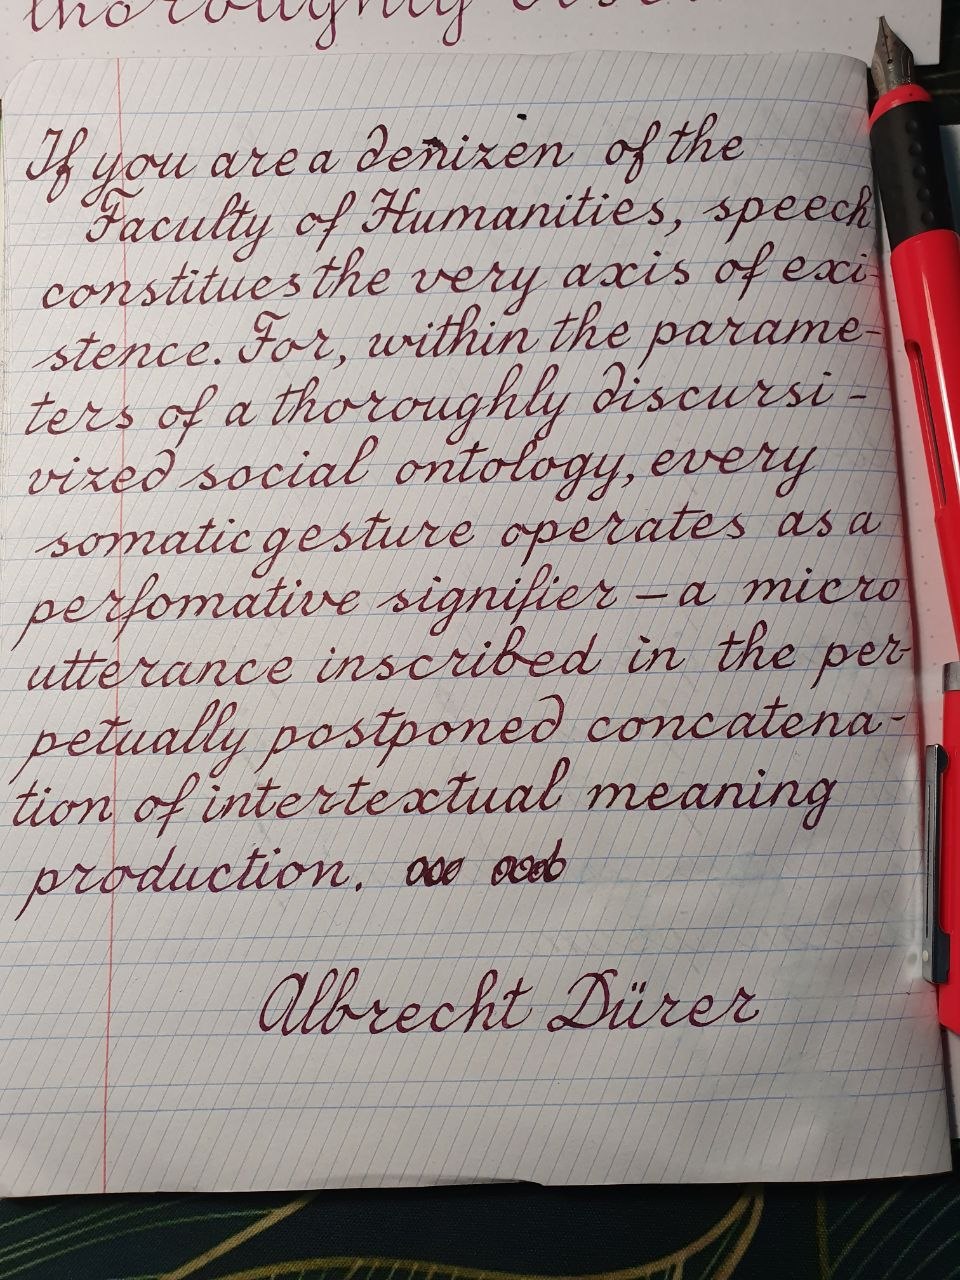 thoroughly
If you are a denizen of the
Faculty of Humanities, speech
constitues the very axis of exi-
stence. For, within the parame-
ters of a thoroughly discursi-
vized social ontology, every
somatic gesture operates as a
perfomative signifier – a micro
utterance inscribed in the per-
petually postponed concatena-
tion of intertextual meaning
production.
Albrecht Dürer